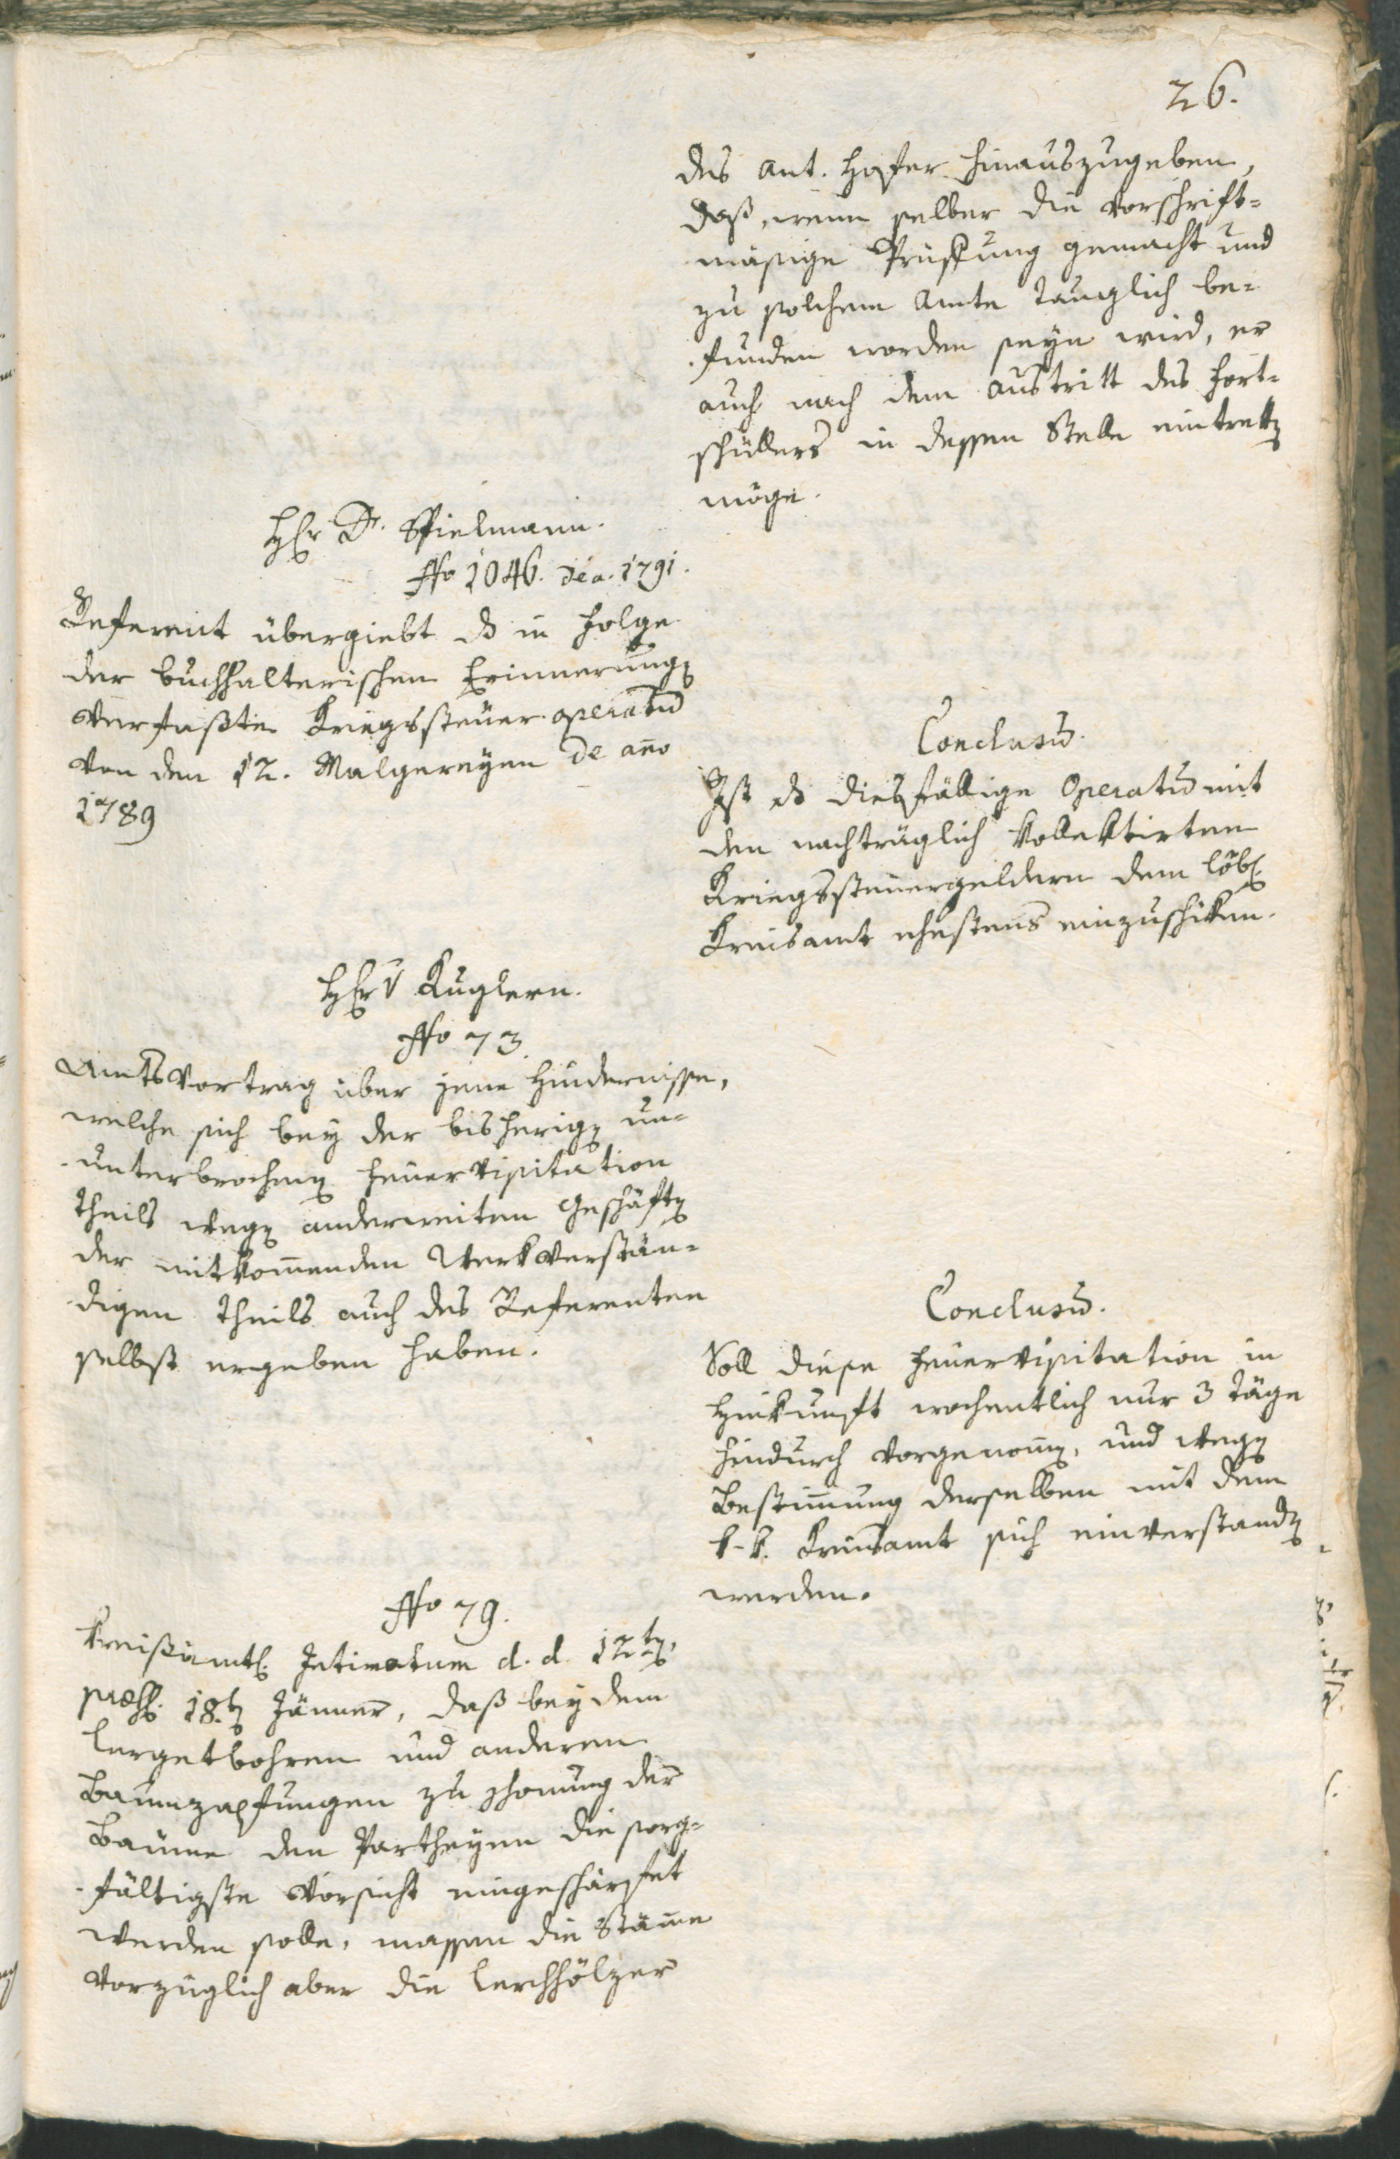 26.
des Ant. Hofer hinauszugeben,
daß, wenn selber die vorschrift¬
mäsige Prüffung gemacht und
zu solchem Amte tauglich be¬
funden worden seyn wird, er
auch nach dem Austritt des Fort¬
schüllers in dessen Stelle eintretten
möge.
Herr Dr. Spielmann.
No 1046. de a. 1791.
Referent übergiebt das in Folge
der buchhalterischen Erinnerungen
verfaßte Kriegssteuer operatum
von den 12. Malgereyen de anno
1789
Conclusum.
Ist das diesfällige Operatum mit
den nachträglich kollektirten
Kriegssteuergeldern dem löbl.
Kreisamt ehestens einzuschiken.
Herr v Kuglern.
No 73.
Amtsvortrag über jene Hindernisse,
welche sich bey der bisherigen un¬
unterbrochenen Feuervisitation
theils wegen anderweiten Geschäften
der mitkommenden Werkverstän¬
digen theils auch des Referenten
selbst ergeben haben.
Conclusum.
Soll diese Feuervisitation in
Hinkunft wochentlich nur 3 Täge
hindurch vorgenommen, und wegen
Bestimmung derselben mit dem
k. k. Kreisamt sich einverstanden
werden.
No 79.
Kreisämtl. Intimatum d. d. 12ten,
praes. 18.ten Jänner, daß bey dem
Lergetbohren und anderen
Baumzapfungen zu Schonung der
Bäume den Partheyen die sorg¬
fältigste Vorsicht eingeschärfet
werden solle, massen die Stämme
vorzüglich aber die Lerchhölzer